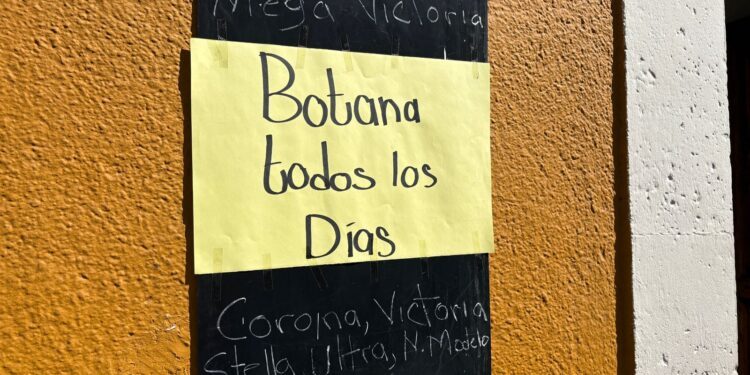 Mega Victoria
Botana
todos los
Días
Corona, Victoria
Stella, Ultra, N. Modelo